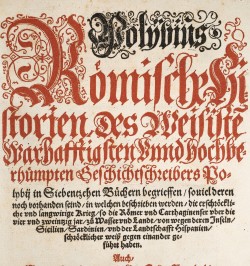 Polybius
Römische Hi-
storien, Des Weisiste
Warhafftigsten Vnnd hochbe-
rhümpten Geschichtschreibers Po-
lybij in Siebentzehen Büchern begrieffen / souiel deren
noch vorhanden seind / in welchen beschrieben werden / die erschröckli-
che vnd langwirige Krieg / so die Römer vnd Carthaginenser vber die
vier vnd zwentzig jar / zu Wasser vnd Land / von wegen deren Inseln /
Sicilien / Sardinien / vnd der Landschafft Hispanien /
schröcklicher weiß gegen einander ge-
führt haben.
Auch /